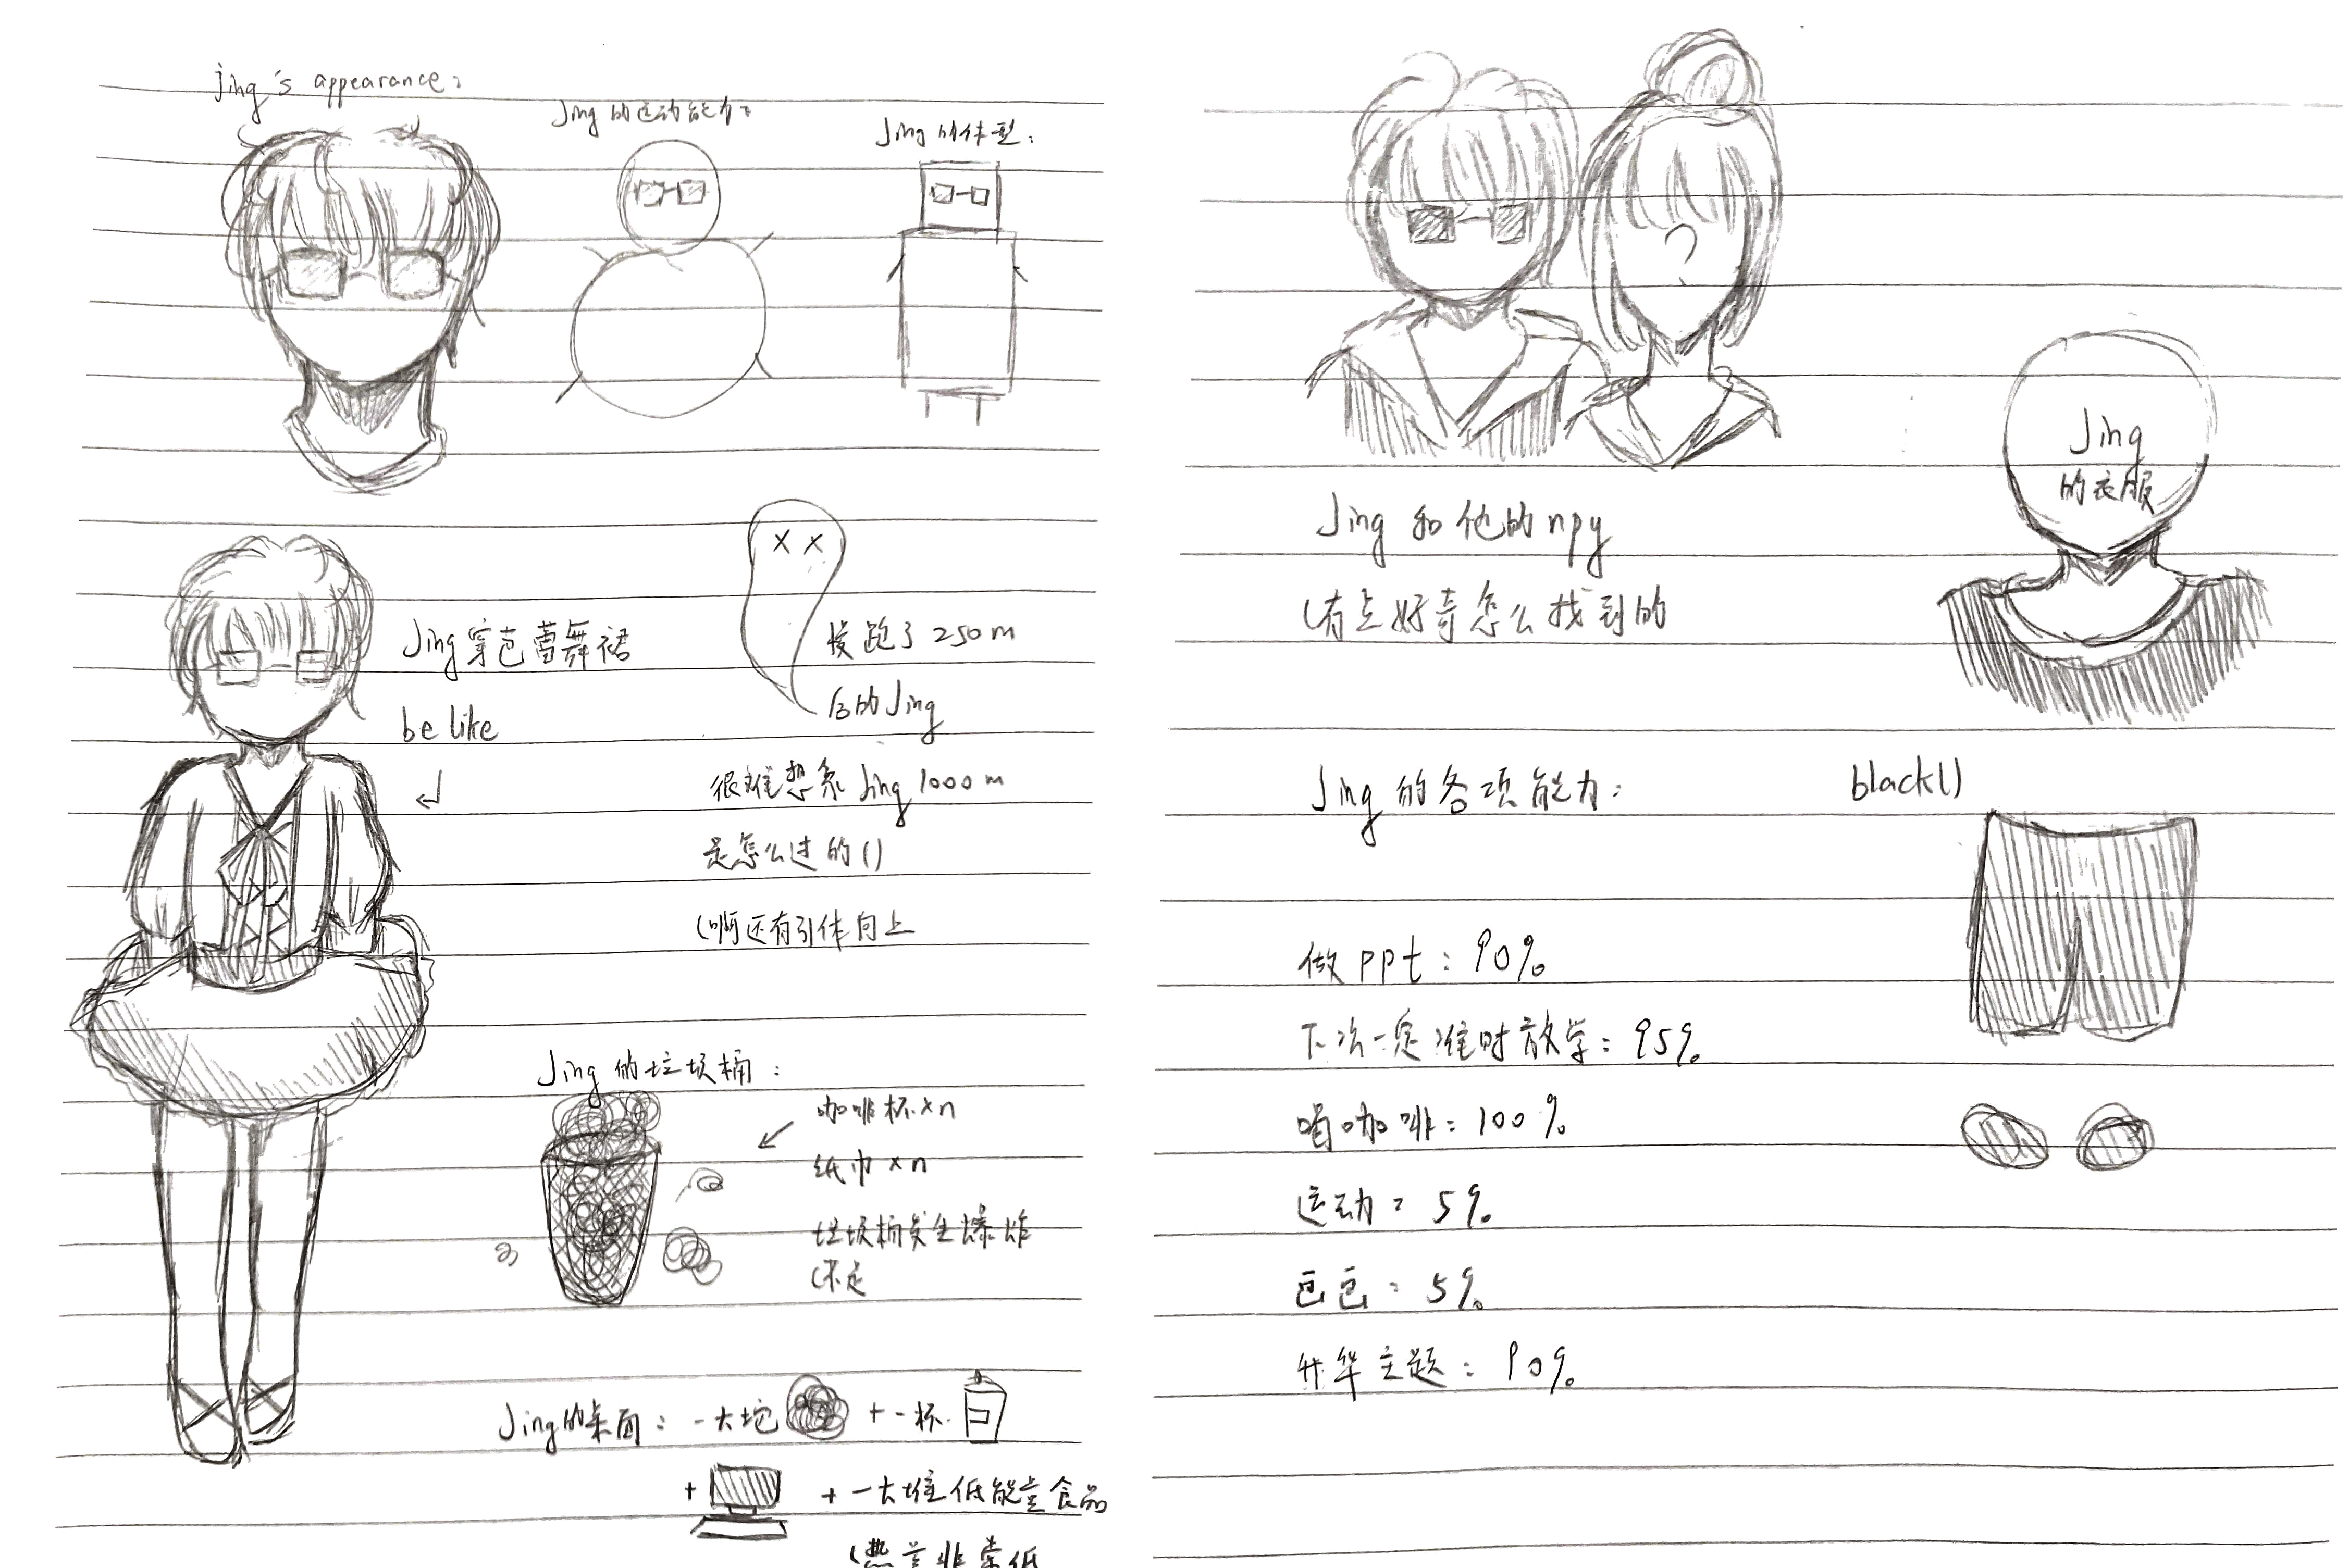 jing's appearance:
Jing的运动能力:
Jing的体型:
Jing穿芭蕾舞裙
be like
慢跑了250m
后的Jing
很难想象Jing 1000m
是怎么过的()
(啊还有引体向上
Jing的垃圾桶:
咖啡杯×n
纸巾×n
垃圾桶发生爆炸
(不是
Jing的桌面: 一大坨 + 一杯
+ + 一大堆低能量食品
(热量非常低
Jing和他的npy
(有点好奇怎么找到的
Jing
的衣服
Jing的各项能力:
black()
做ppt: 90%
下次一定准时放学: 95%
喝咖啡: 100%
运动: 5%
芭芭: 5%
升华主题: 90%